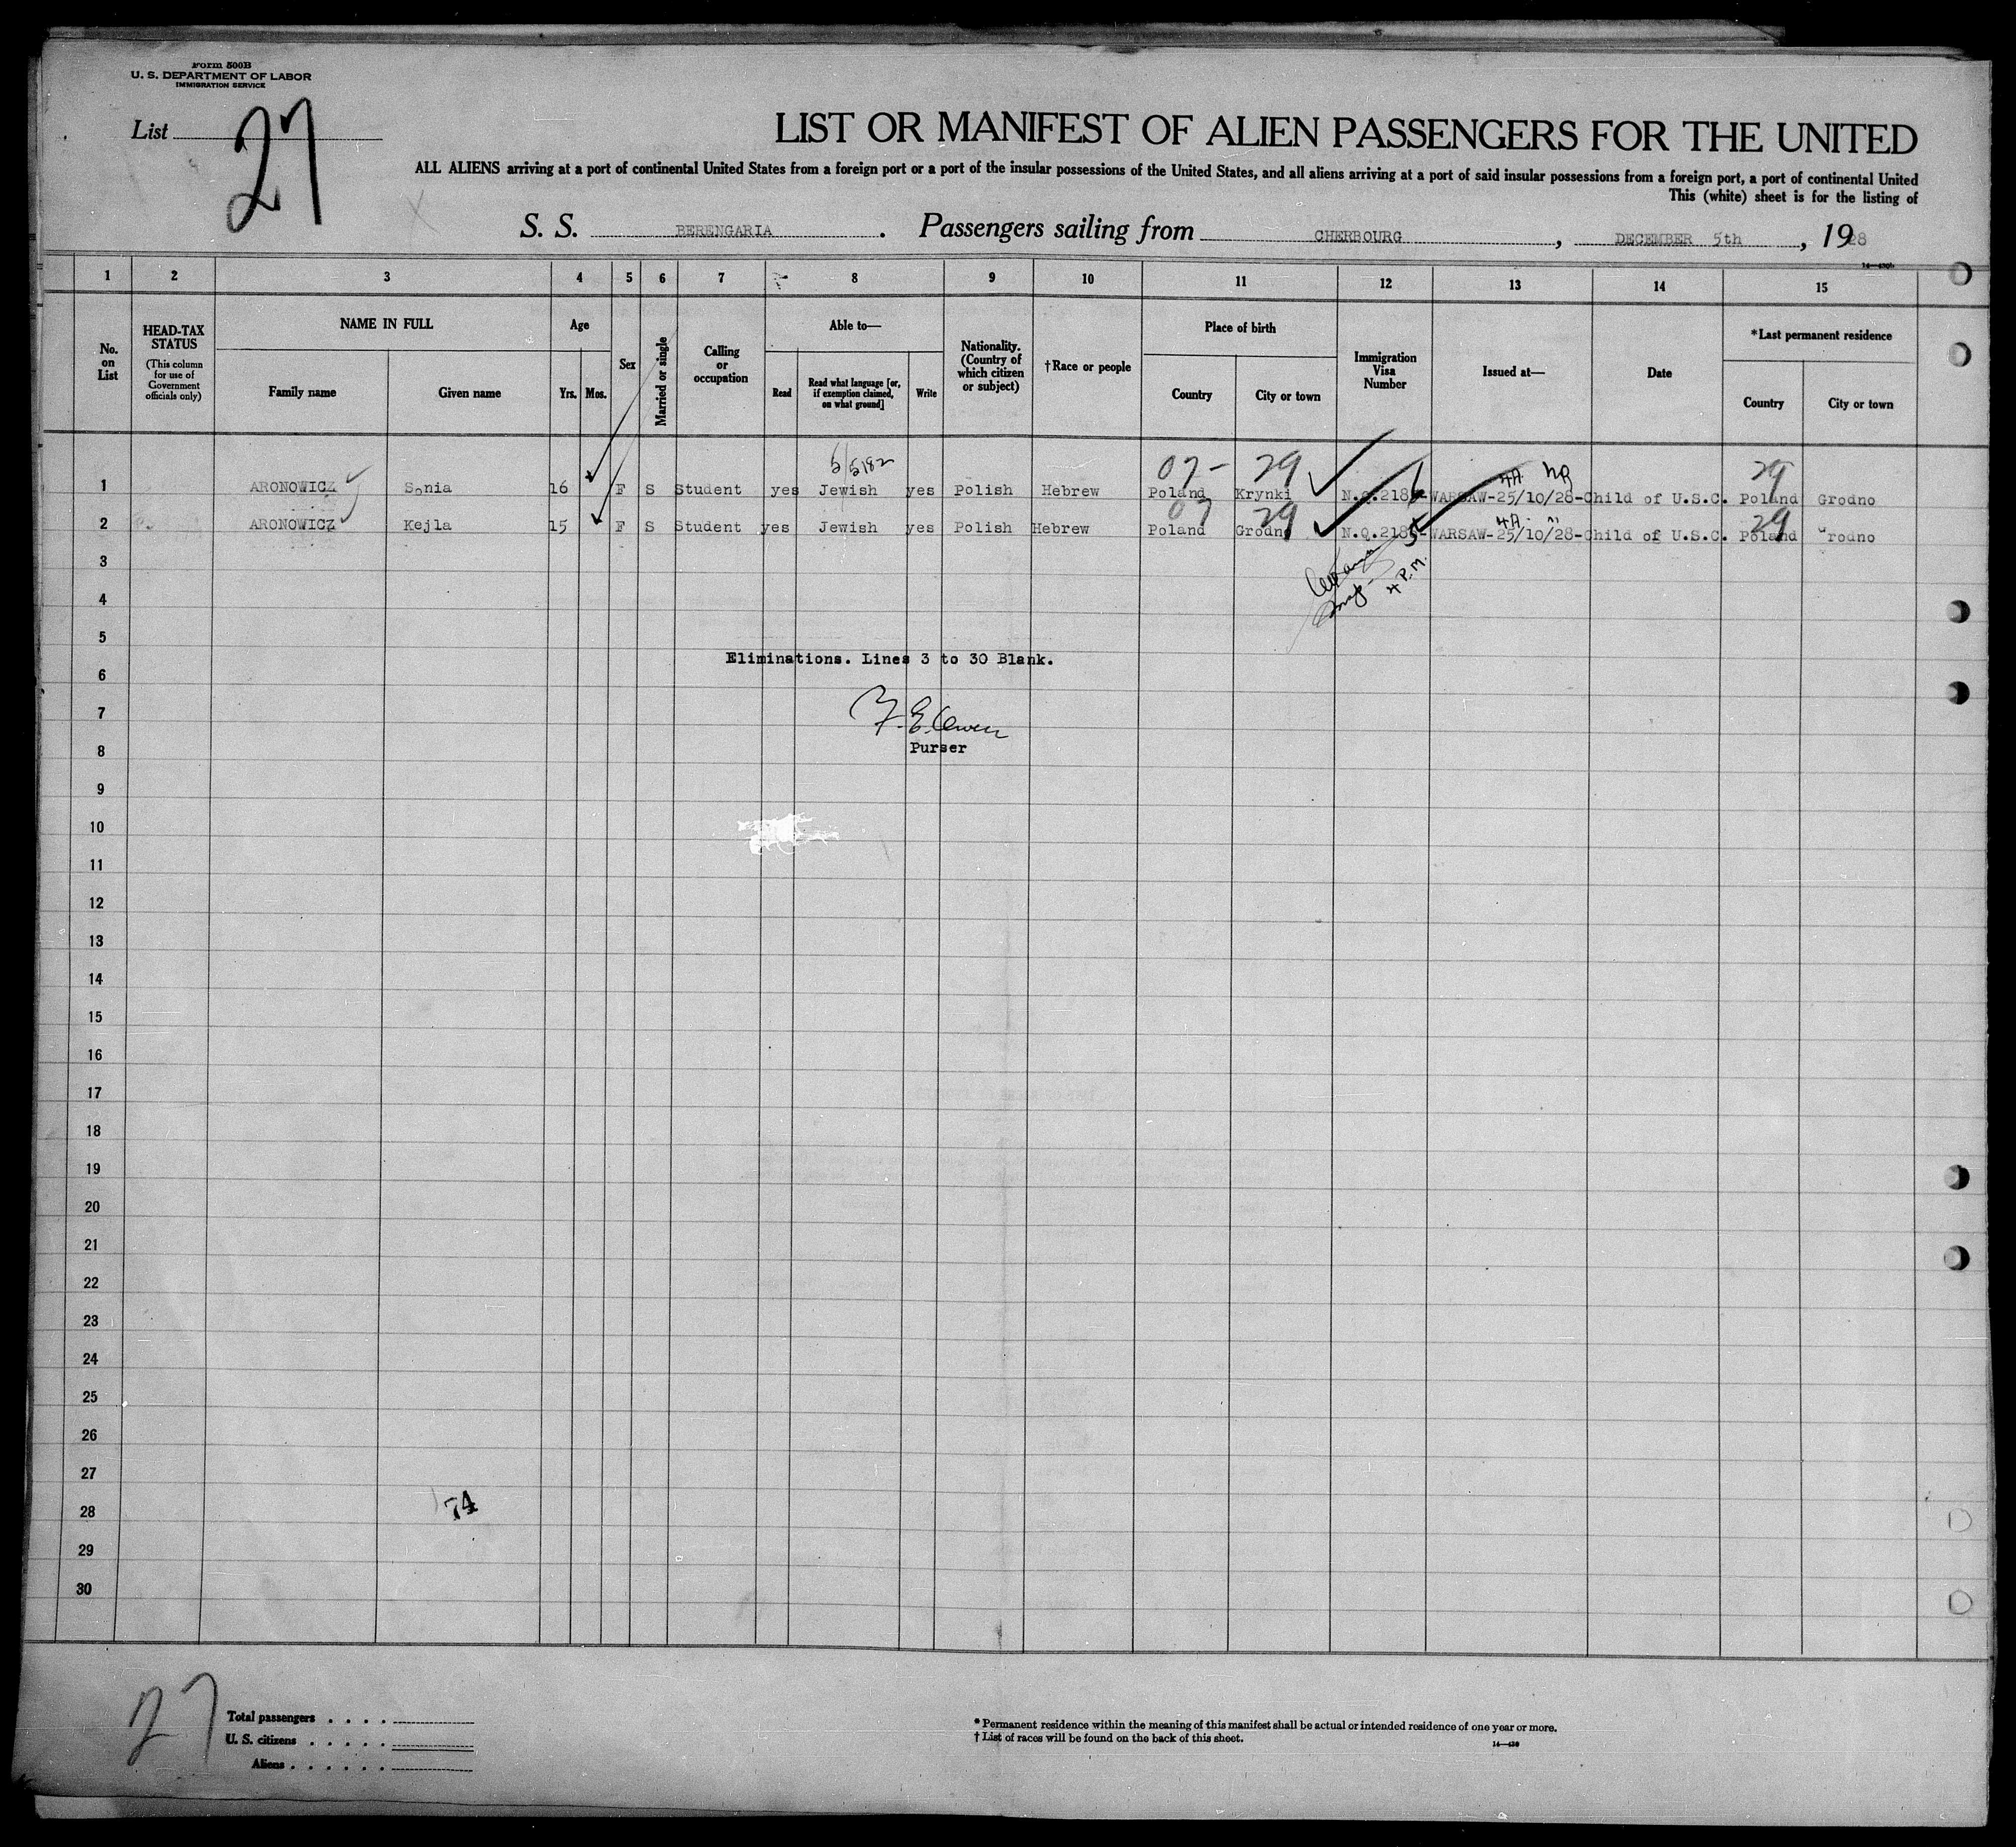 Form 500B
U. S. DEPARTMENT OF LABOR
IMMIGRATION SERVICE
List 27
LIST OR MANIFEST OF ALIEN PASSENGERS FOR THE UNITED
ALL ALIENS arriving at a port of continental United States from a foreign port or a port of the insular possessions of the United States, and all aliens arriving at a port of said insular possessions from a foreign port, a port of continental United
This (white) sheet is for the listing of
S. S. BERENGARIA . Passengers sailing from CHERBOURG , DECEMBER 5th , 1928
1 2 3 4 5 6 7 8 9 10 11 12 13 14 15
No. on List
HEAD-TAX STATUS
(This column for use of Government officials only)
NAME IN FULL
Family name
Given name
Age
Yrs.
Mos.
Sex
Married or single
Calling or occupation
Able to—
Read
Read what language [or, if exemption claimed, on what ground]
Write
Nationality. (Country of which citizen or subject)
†Race or people
Place of birth
Country
City or town
Immigration Visa Number
Issued at—
Date
*Last permanent residence
Country
City or town
5/5182
07- 29 4A 29
1 ARONOWICZ Sonia 16 F S Student yes Jewish yes Polish Hebrew Poland Krynki N.Q.218 -WARSAW-25/10/28-Child of U.S.C. Poland Grodno
07 29 4A " 29
2 ARONOWICZ Kejla 15 F S Student yes Jewish yes Polish Hebrew Poland Grodno N.Q.2185-WARSAW-25/10/28-Child of U.S.C. Poland Grodno
3
4 4 P.M.
5
Eliminations. Lines 3 to 30 Blank.
6
7
8 Purser
9
10
11
12
13
14
15
16
17
18
19
20
21
22
23
24
25
26
27
28 74
29
30
27
Total passengers
U. S. citizens
Aliens
* Permanent residence within the meaning of this manifest shall be actual or intended residence of one year or more.
† List of races will be found on the back of this sheet.